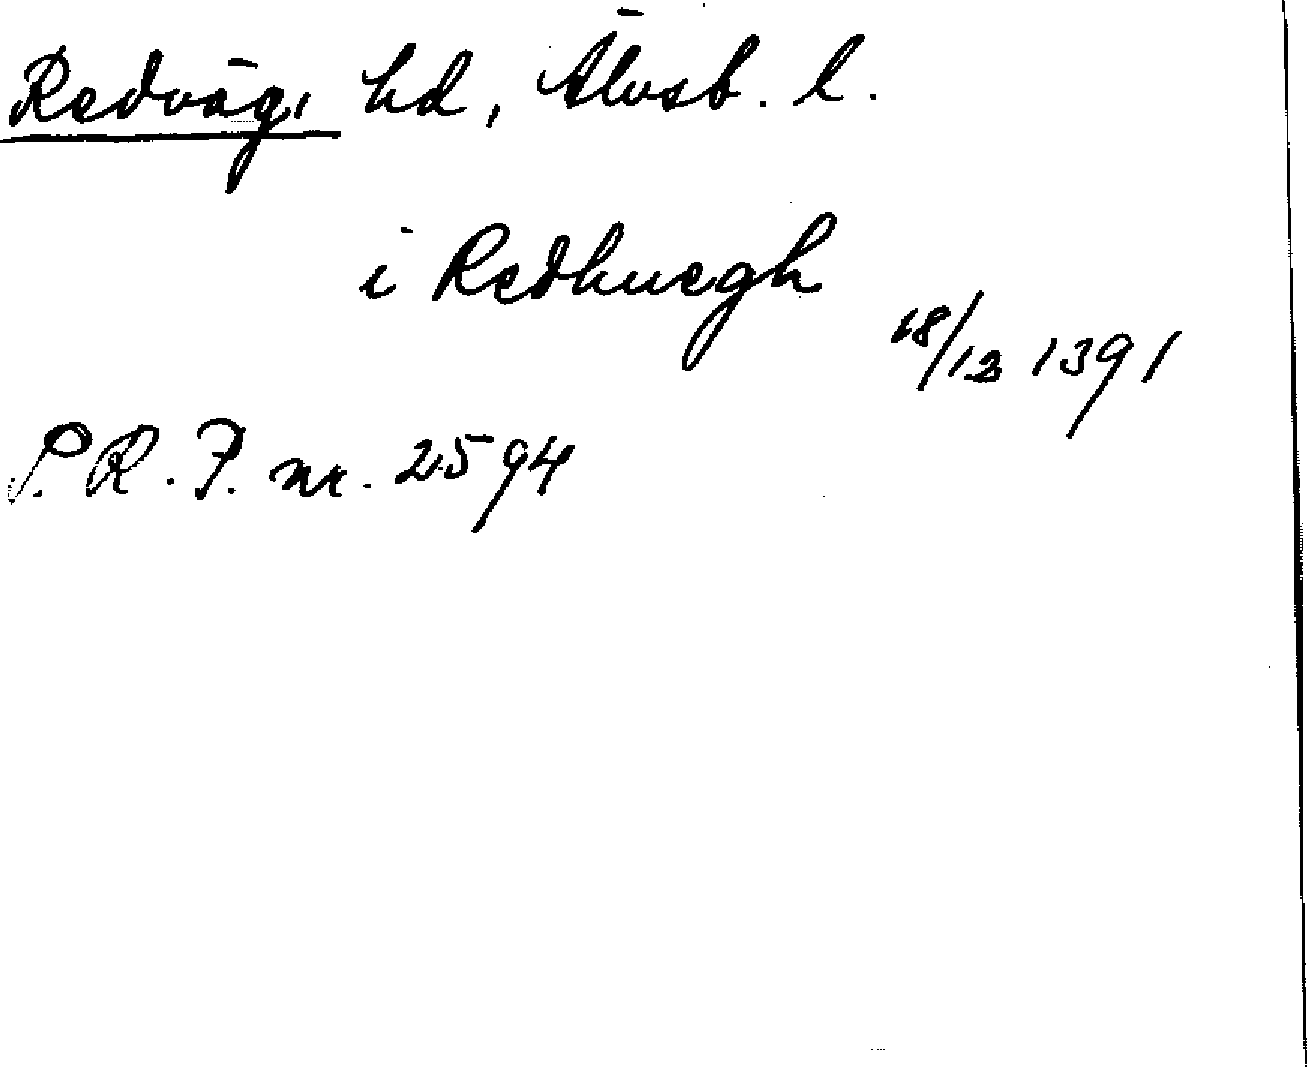 Redväg, hd, Älvsb. l.
i Redhuegh
18/12 1391
S.R.P. nr. 2594